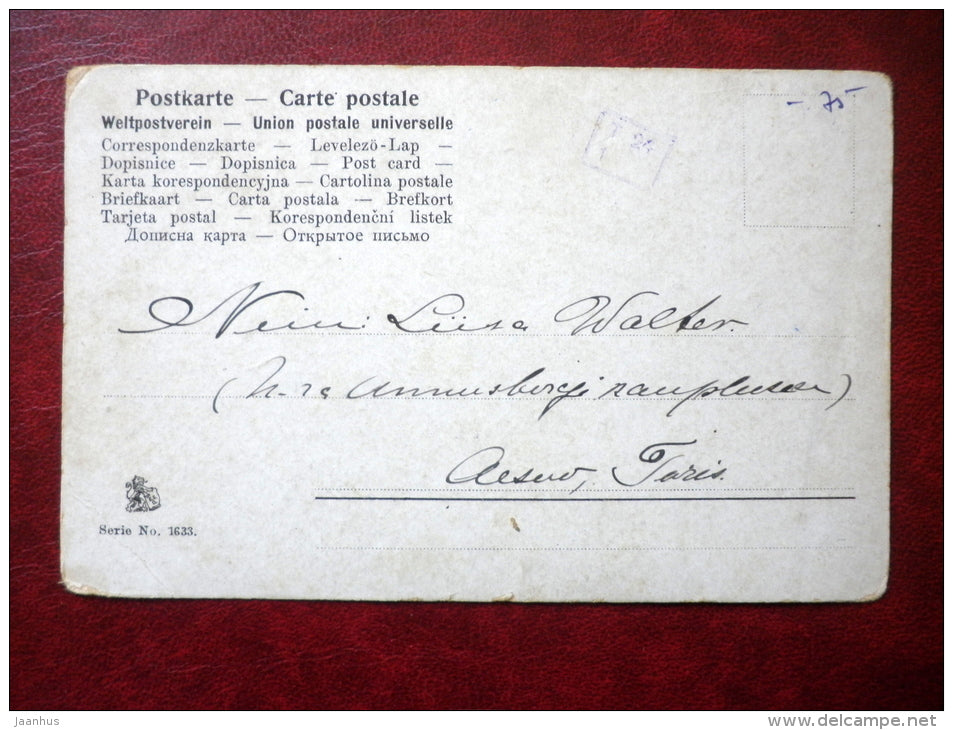 Postkarte — Carte postale
Weltpostverein — Union postale universelle
Correspondenzkarte — Levelező-Lap —
Dopisnice — Dopisnica — Post card —
Karta korespondencyjna — Cartolina postale
Briefkaart — Carta postala — Brefkort
Tarjeta postal — Korespondenční listek
Дописна карта — Открытое письмо
- 75 -
Neiu: Liisa Walter.
Toris.
Serie No. 1633.
Jaanhus
www.delcampe.net